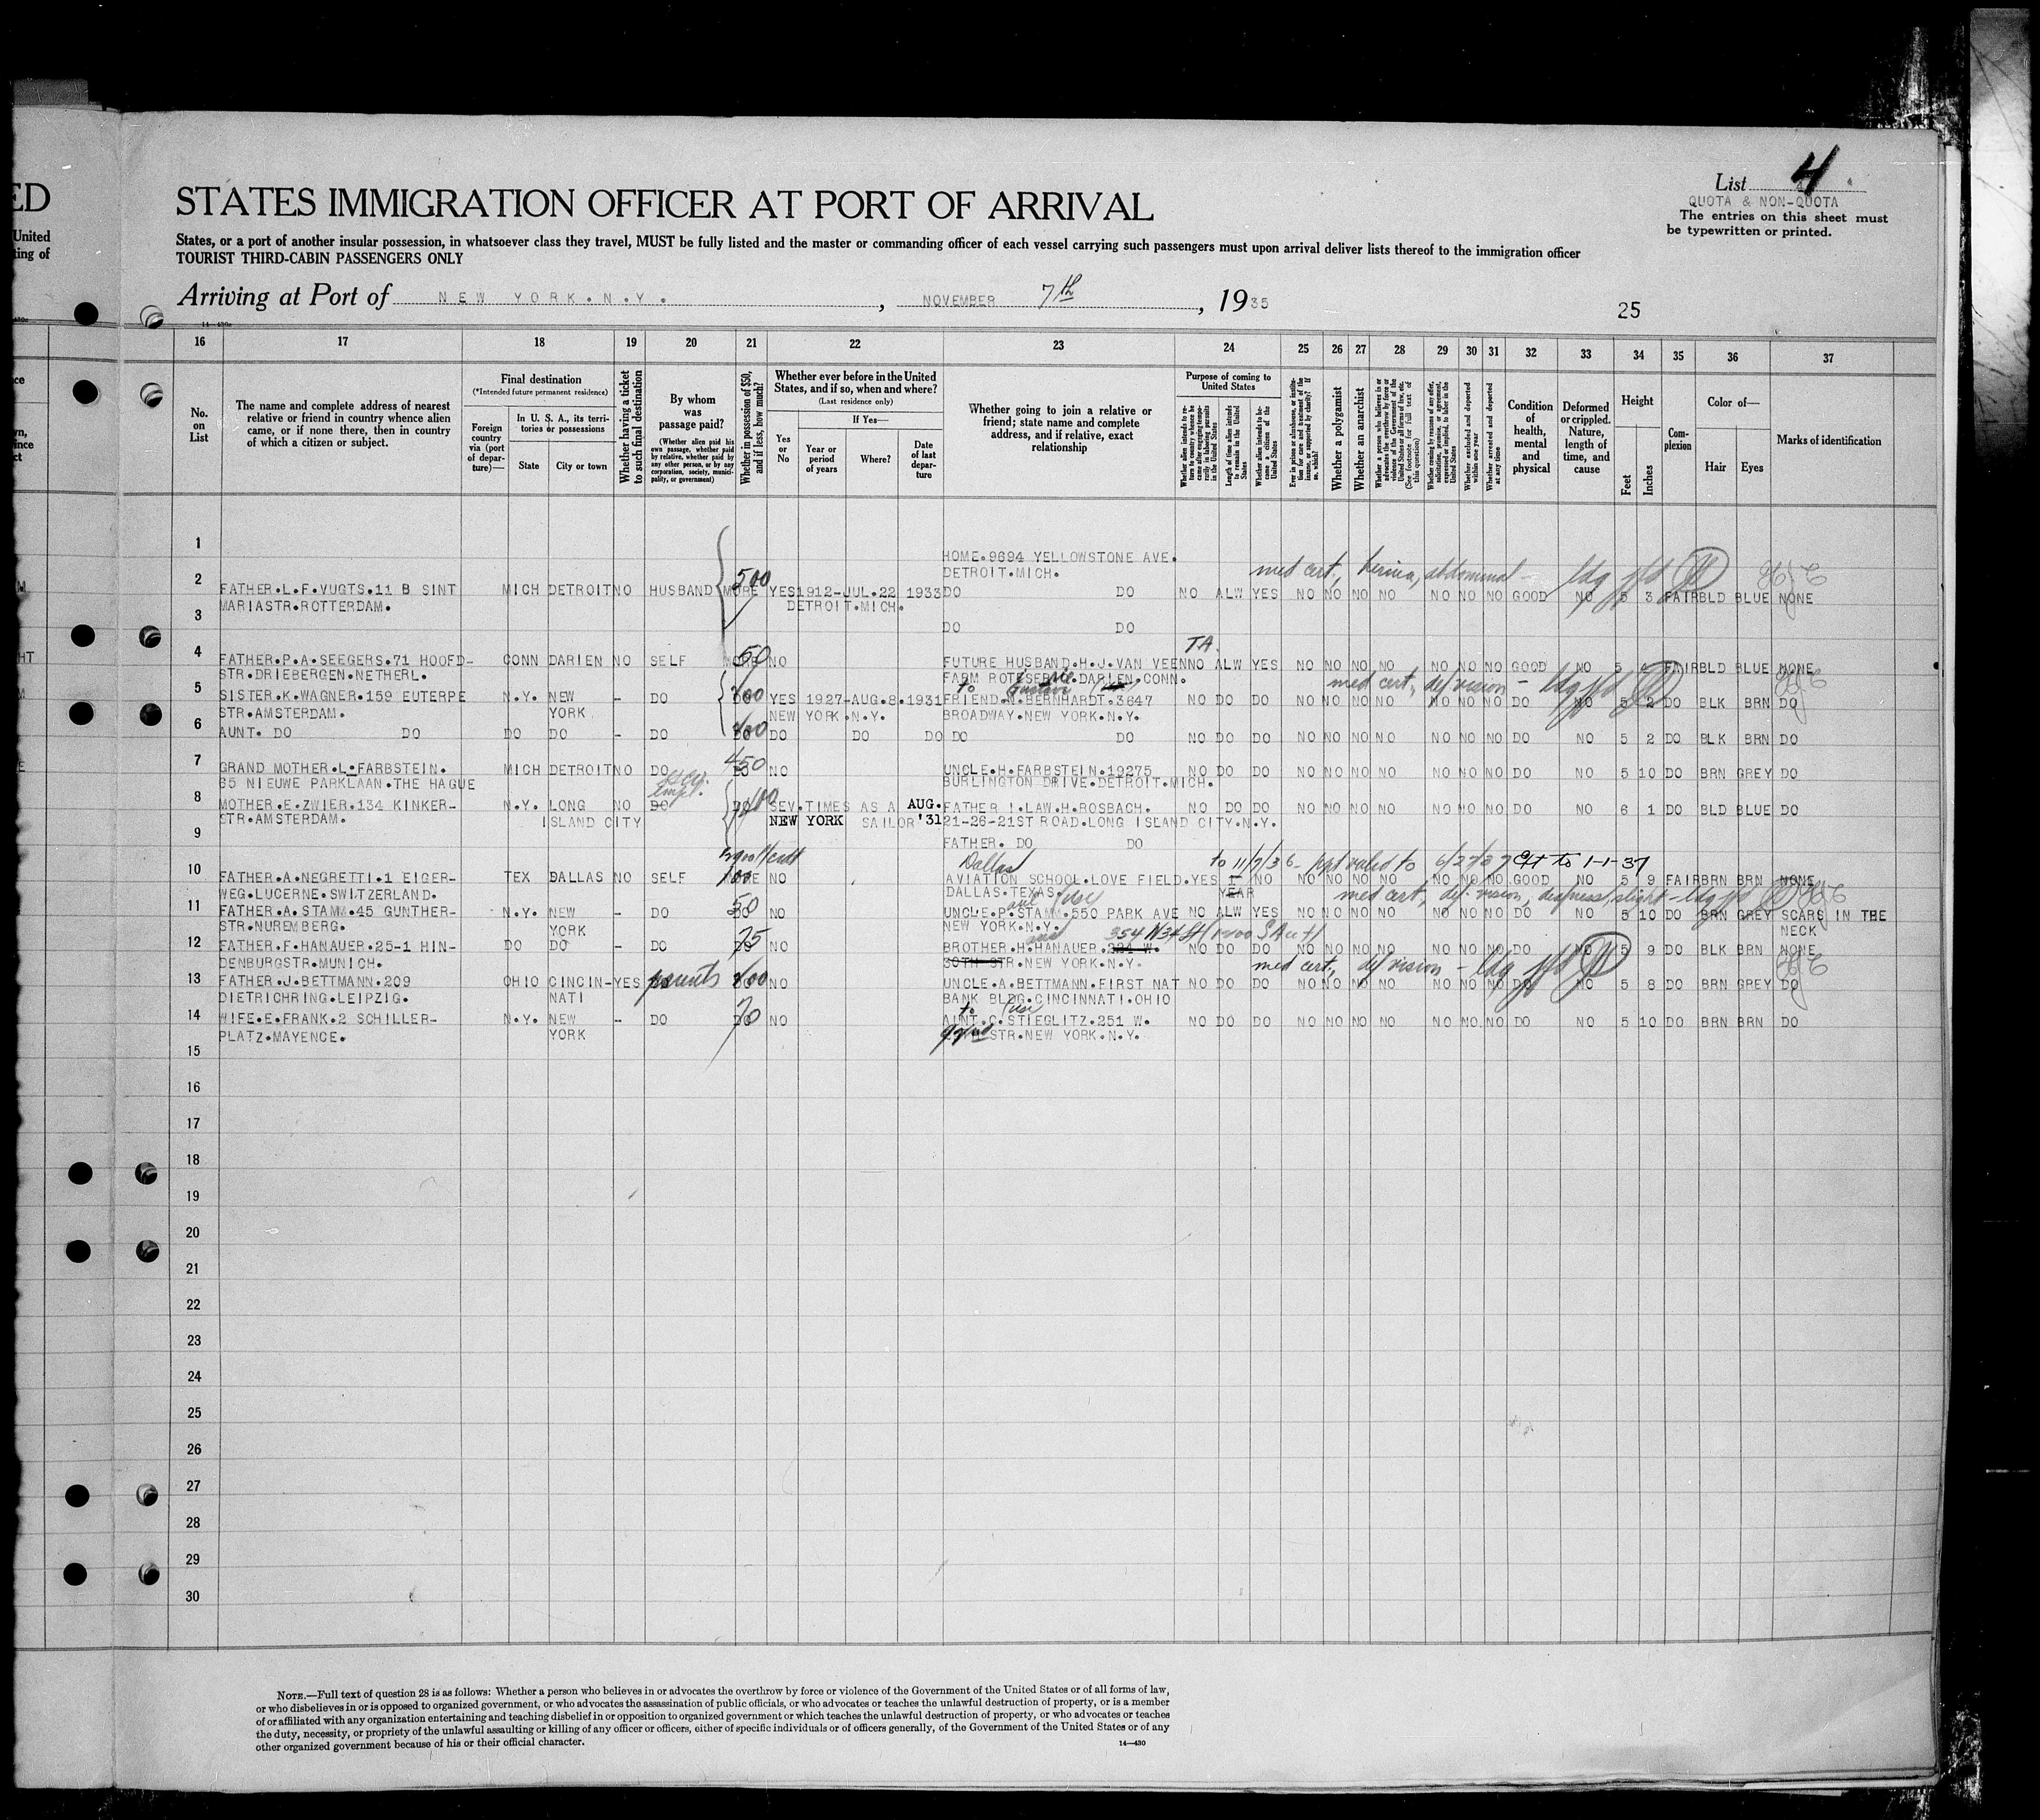 ED
United
ing of
List 4
QUOTA & NON-QUOTA
The entries on this sheet must
be typewritten or printed.
STATES IMMIGRATION OFFICER AT PORT OF ARRIVAL
States, or a port of another insular possession, in whatsoever class they travel, MUST be fully listed and the master or commanding officer of each vessel carrying such passengers must upon arrival deliver lists thereof to the immigration officer
TOURIST THIRD-CABIN PASSENGERS ONLY
Arriving at Port of NEW YORK.N.Y. , NOVEMBER 7th , 1935
25
16 17 18 19 20 21 22 23 24 25 26 27 28 29 30 31 32 33 34 35 36 37
No. on List
The name and complete address of nearest relative or friend in country whence alien came, or if none there, then in country of which a citizen or subject.
Final destination
(*Intended future permanent residence)
Foreign country via (port of departure)—
In U. S. A., its territories or possessions
State
City or town
Whether having a ticket to such final destination
By whom was passage paid?
(Whether alien paid his own passage, whether paid by relative, whether paid by any other person, or by any corporation, society, municipality, or government)
Whether in possession of $50, and if less, how much?
Whether ever before in the United States, and if so, when and where?
(Last residence only)
Yes or No
If Yes—
Year or period of years
Where?
Date of last departure
Whether going to join a relative or friend; state name and complete address, and if relative, exact relationship
Purpose of coming to United States
Length of time alien intends to remain in the United States
Whether alien intends to become a citizen of the United States
Whether a polygamist
Whether an anarchist
(See footnote for full text of this question)
Whether excluded and deported within one year
Whether arrested and deported at any time
Condition of health, mental and physical
Deformed or crippled. Nature, length of time, and cause
Height
Feet
Inches
Complexion
Color of—
Hair
Eyes
Marks of identification
1
HOME.9694 YELLOWSTONE AVE.
DETROIT.MICH.
med cert, hernia, abdominal -
2 FATHER.L.F.VUGTS.11 B SINT MICH DETROIT NO HUSBAND 500 YES 1912-JUL.22 1933 DO DO NO ALW YES NO NO NO NO NO NO NO GOOD NO 5 3 FAIR BLD BLUE NONE
MARIASTR.ROTTERDAM. DETROIT.MICH.
3 DO DO
TA
4 FATHER.P.A.SEEGERS.71 HOOFD- CONN DARIEN NO SELF 50 NO FUTURE HUSBAND.H.J.VAN VEEN NO ALW YES NO NO NO NO NO NO NO GOOD NO 5 FAIR BLD BLUE NONE
STR.DRIEBERGEN.NETHERL. DARIEN.CONN.
med cert, def vision -
5 SISTER.K.WAGNER.159 EUTERPE N.Y. NEW - DO YES 1927-AUG.8.1931 FRIEND.W.BERNHARDT.3647 NO DO DO NO NO NO NO NO NO NO DO NO 5 2 DO BLK BRN DO
STR.AMSTERDAM. YORK NEW YORK.N.Y. BROADWAY.NEW YORK.N.Y.
6 AUNT. DO DO DO DO - DO DO DO DO DO DO NO DO DO NO NO NO NO NO NO NO DO NO 5 2 DO BLK BRN DO
7 GRAND MOTHER.L.FARBSTEIN. MICH DETROIT NO DO 450 NO UNCLE.H.FARBSTEIN.19275 NO DO DO NO NO NO NO NO NO NO DO NO 5 10 DO BRN GREY DO
65 NIEUWE PARKLAAN.THE HAGUE BURLINGTON DRIVE.DETROIT.MICH.
8 MOTHER.E.ZWIER.134 KINKER- N.Y. LONG NO DO SEV.TIMES AS A AUG. FATHER I.LAW.H.ROSBACH. NO DO DO NO NO NO NO NO NO NO DO NO 6 1 DO BLD BLUE DO
STR.AMSTERDAM. ISLAND CITY NEW YORK SAILOR '31 21-26-21ST ROAD.LONG ISLAND CITY.N.Y.
9 FATHER. DO DO
Dallas to 11/7/36 ppt valid to 6/27/37 Ext to 1-1-37
10 FATHER.A.NEGRETTI.1 EIGER- TEX DALLAS NO SELF NO AVIATION SCHOOL.LOVE FIELD. YES 1 NO NO NO NO NO NO NO NO GOOD NO 5 9 FAIR BRN BRN NONE
WEG.LUCERNE.SWITZERLAND. DALLAS.TEXAS. YEAR
med cert, def. vision, deafness, slight -
11 FATHER.A.STAMM.45 GUNTHER- N.Y. NEW - DO 50 NO UNCLE.P.STAMM.550 PARK AVE NO ALW YES NO NO NO NO NO NO NO DO NO 5 10 DO BRN GREY SCARS IN THE
STR.NUREMBERG. YORK NEW YORK.N.Y. NECK
354 W 34 St
12 FATHER.F.HANAUER.25-1 HIN- DO DO - DO 75 NO BROTHER.H.HANAUER. NO DO DO NO NO NO NO NO NO NO DO NO 5 9 DO BLK BRN NONE
DENBURGSTR.MUNICH. 30TH STR.NEW YORK.N.Y.
med cert, def vision -
13 FATHER.J.BETTMANN.209 OHIO CINCIN- YES parents NO UNCLE.A.BETTMANN.FIRST NAT NO DO DO NO NO NO NO NO NO NO DO NO 5 8 DO BRN GREY DO
DIETRICHRING.LEIPZIG. NATI BANK BLDG.CINCINNATI.OHIO
14 WIFE.E.FRANK.2 SCHILLER- N.Y. NEW - DO 70 NO AUNT.C.STIEGLITZ.251 W. NO DO DO NO NO NO NO NO NO NO DO NO 5 10 DO BRN BRN DO
PLATZ.MAYENCE. YORK STR.NEW YORK.N.Y.
15
16
17
18
19
20
21
22
23
24
25
26
27
28
29
30
NOTE.—Full text of question 28 is as follows: Whether a person who believes in or advocates the overthrow by force or violence of the Government of the United States or of all forms of law,
or who disbelieves in or is opposed to organized government, or who advocates the assassination of public officials, or who advocates or teaches the unlawful destruction of property, or is a member
of or affiliated with any organization entertaining and teaching disbelief in or opposition to organized government or which teaches the unlawful destruction of property, or who advocates or teaches
the duty, necessity, or propriety of the unlawful assaulting or killing of any officer or officers, either of specific individuals or of officers generally, of the Government of the United States or of any
other organized government because of his or their official character.
14—430